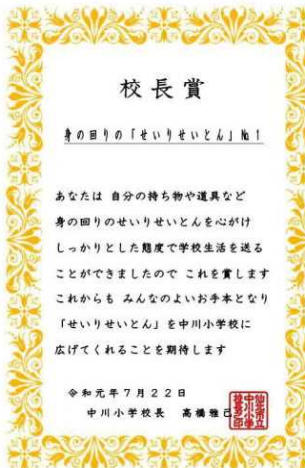 校長賞
身の回りの「せいりせいとん」№1
あなたは 自分の持ち物や道具など
身の回りのせいりせいとんを心がけ
しっかりとした態度で学校生活を送る
ことができましたので これを賞します
これからも みんなのよいお手本となり
「せいりせいとん」を中川小学校に
広げてくれることを期待します
令和元年7月22日
中川小学校長 高橋雅己